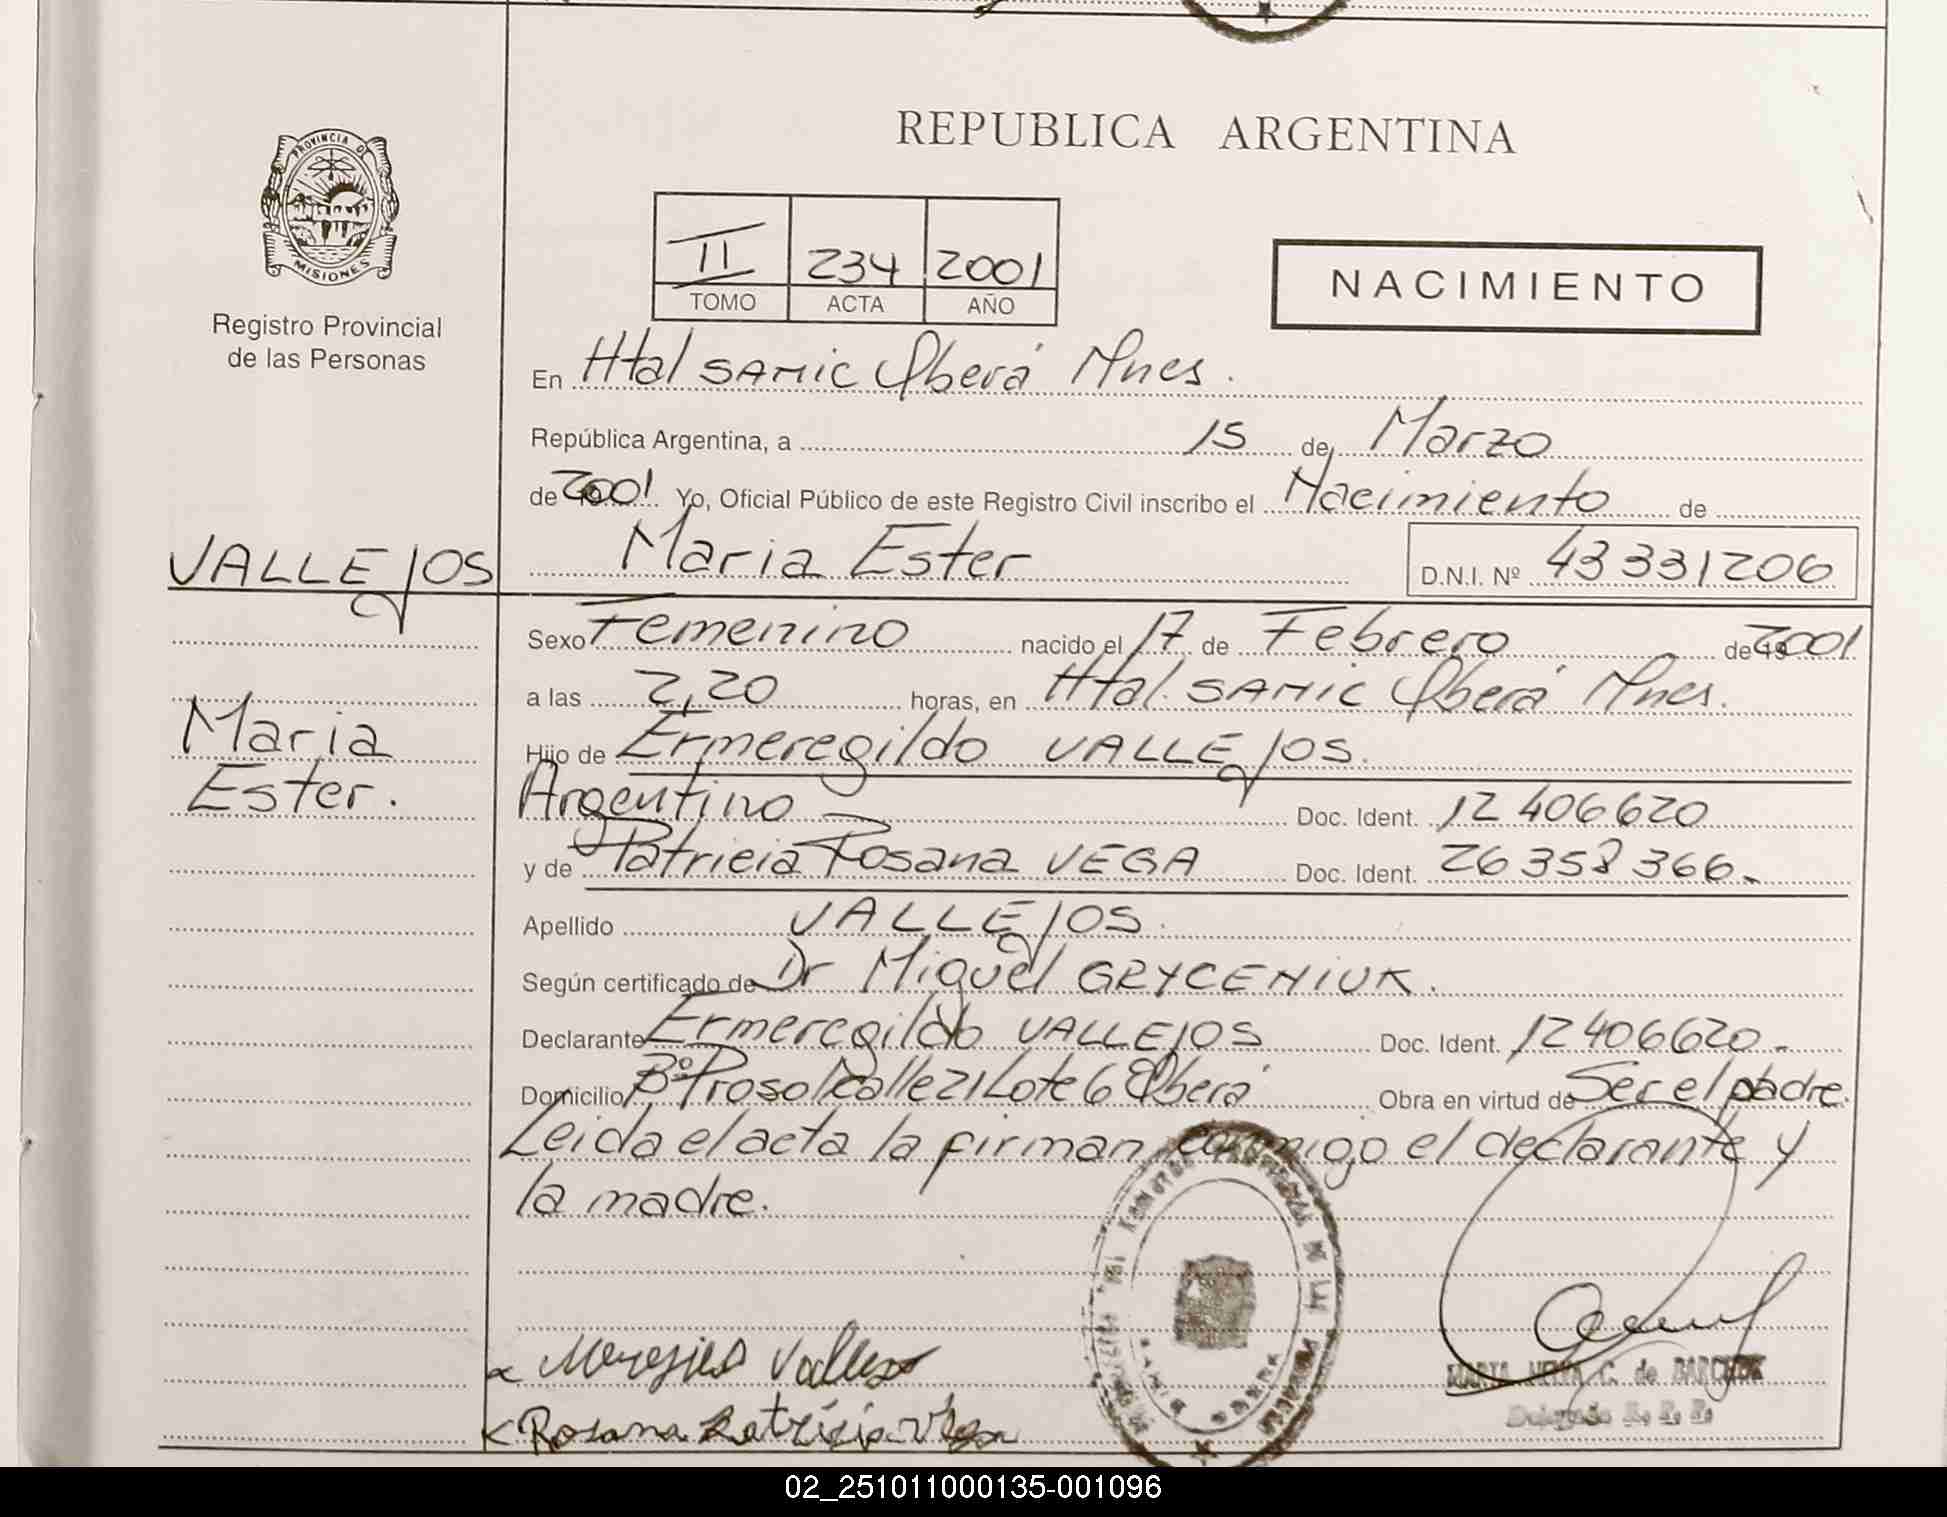 REPUBLICA ARGENTINA
PROVINCIA DE
MISIONES
Registro Provincial
de las Personas
II 234 2001
TOMO ACTA AÑO
NACIMIENTO
En Htal SAMIC Oberá Mnes.
República Argentina, a 15 de Marzo
de 2001 Yo, Oficial Público de este Registro Civil inscribo el Nacimiento de
Maria Ester D.N.I. Nº 43 331206
VALLEJOS
Maria
Ester.
Sexo Femenino nacido el 17 de Febrero de 2001
a las 2,20 horas, en Htal. SAMIC Oberá Mnes.
Hijo de Ermeregildo VALLEJOS.
Argentino Doc. Ident. 12 406620
y de Patricia Rosana VEGA Doc. Ident. 26 358 366.
Apellido VALLEJOS.
Según certificado de Dr Miguel GRYCENIUK.
Declarante Ermeregildo VALLEJOS Doc. Ident. 12 406620.
Domicilio Bº Prosol calle 21 Lote 6 Oberá Obra en virtud de Ser el padre.
Leida el acta la firman conmigo el declarante y
la madre.
Rosana Patricia Vega
02_251011000135-001096